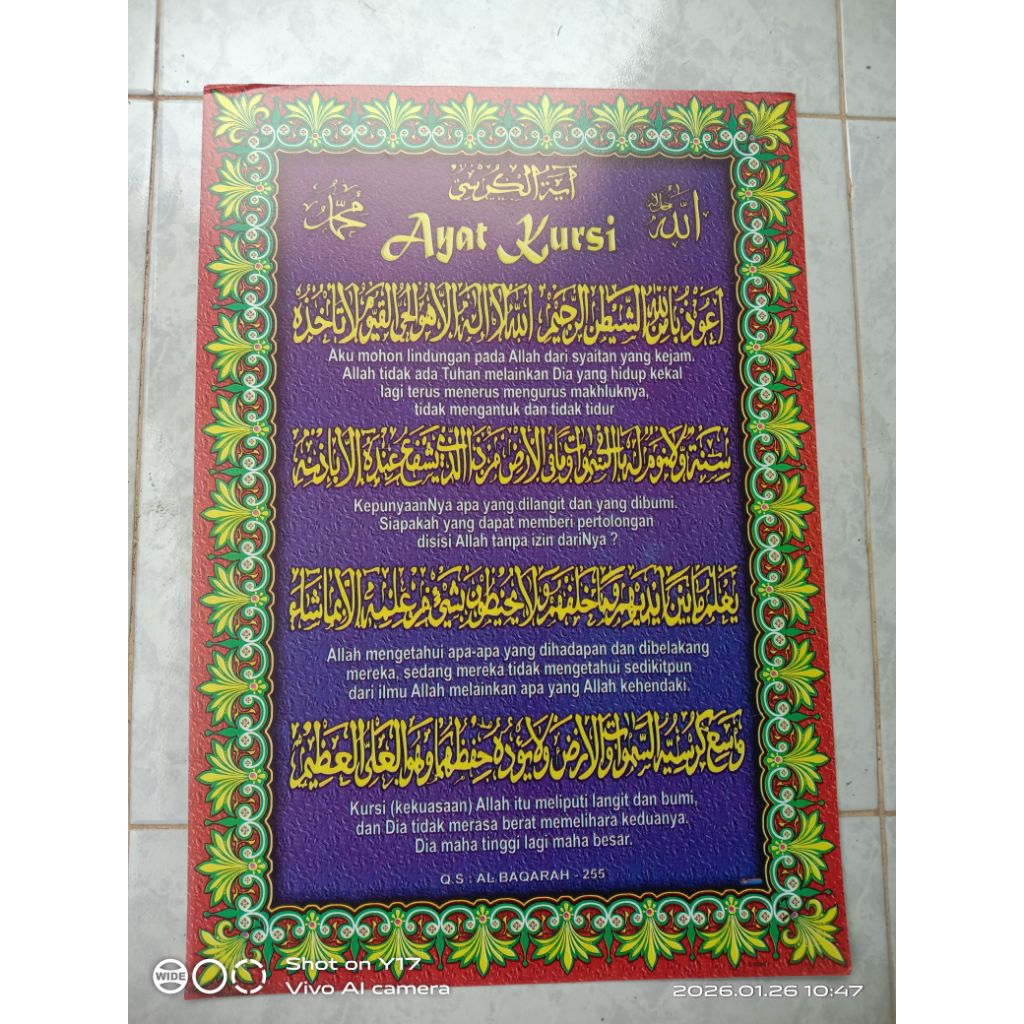 آية الكرسي
محمد
الله جل جلاله
Ayat Kursi
اعوذ بالله الشيطن الرجيم الله لا اله الا هو الحي القيوم لا تأخذه
Aku mohon lindungan pada Allah dari syaitan yang kejam.
Allah tidak ada Tuhan melainkan Dia yang hidup kekal
lagi terus menerus mengurus makhluknya,
tidak mengantuk dan tidak tidur
سنة ولا نوم له ما في السموات وما في الارض من ذا الذي يشفع عنده الا باذنه
KepunyaanNya apa yang dilangit dan yang dibumi.
Siapakah yang dapat memberi pertolongan
disisi Allah tanpa izin dariNya ?
يعلم ما بين ايديهم وما خلفهم ولا يحيطون بشيء من علمه الا بما شاء
Allah mengetahui apa-apa yang dihadapan dan dibelakang
mereka, sedang mereka tidak mengetahui sedikitpun
dari ilmu Allah melainkan apa yang Allah kehendaki.
وسع كرسيه السموات والارض ولا يؤده حفظهما وهو العلي العظيم
Kursi (kekuasaan) Allah itu meliputi langit dan bumi,
dan Dia tidak merasa berat memelihara keduanya.
Dia maha tinggi lagi maha besar.
Q.S : AL BAQARAH - 255
WIDE
Shot on Y17
Vivo AI camera
2026.01.26 10:47